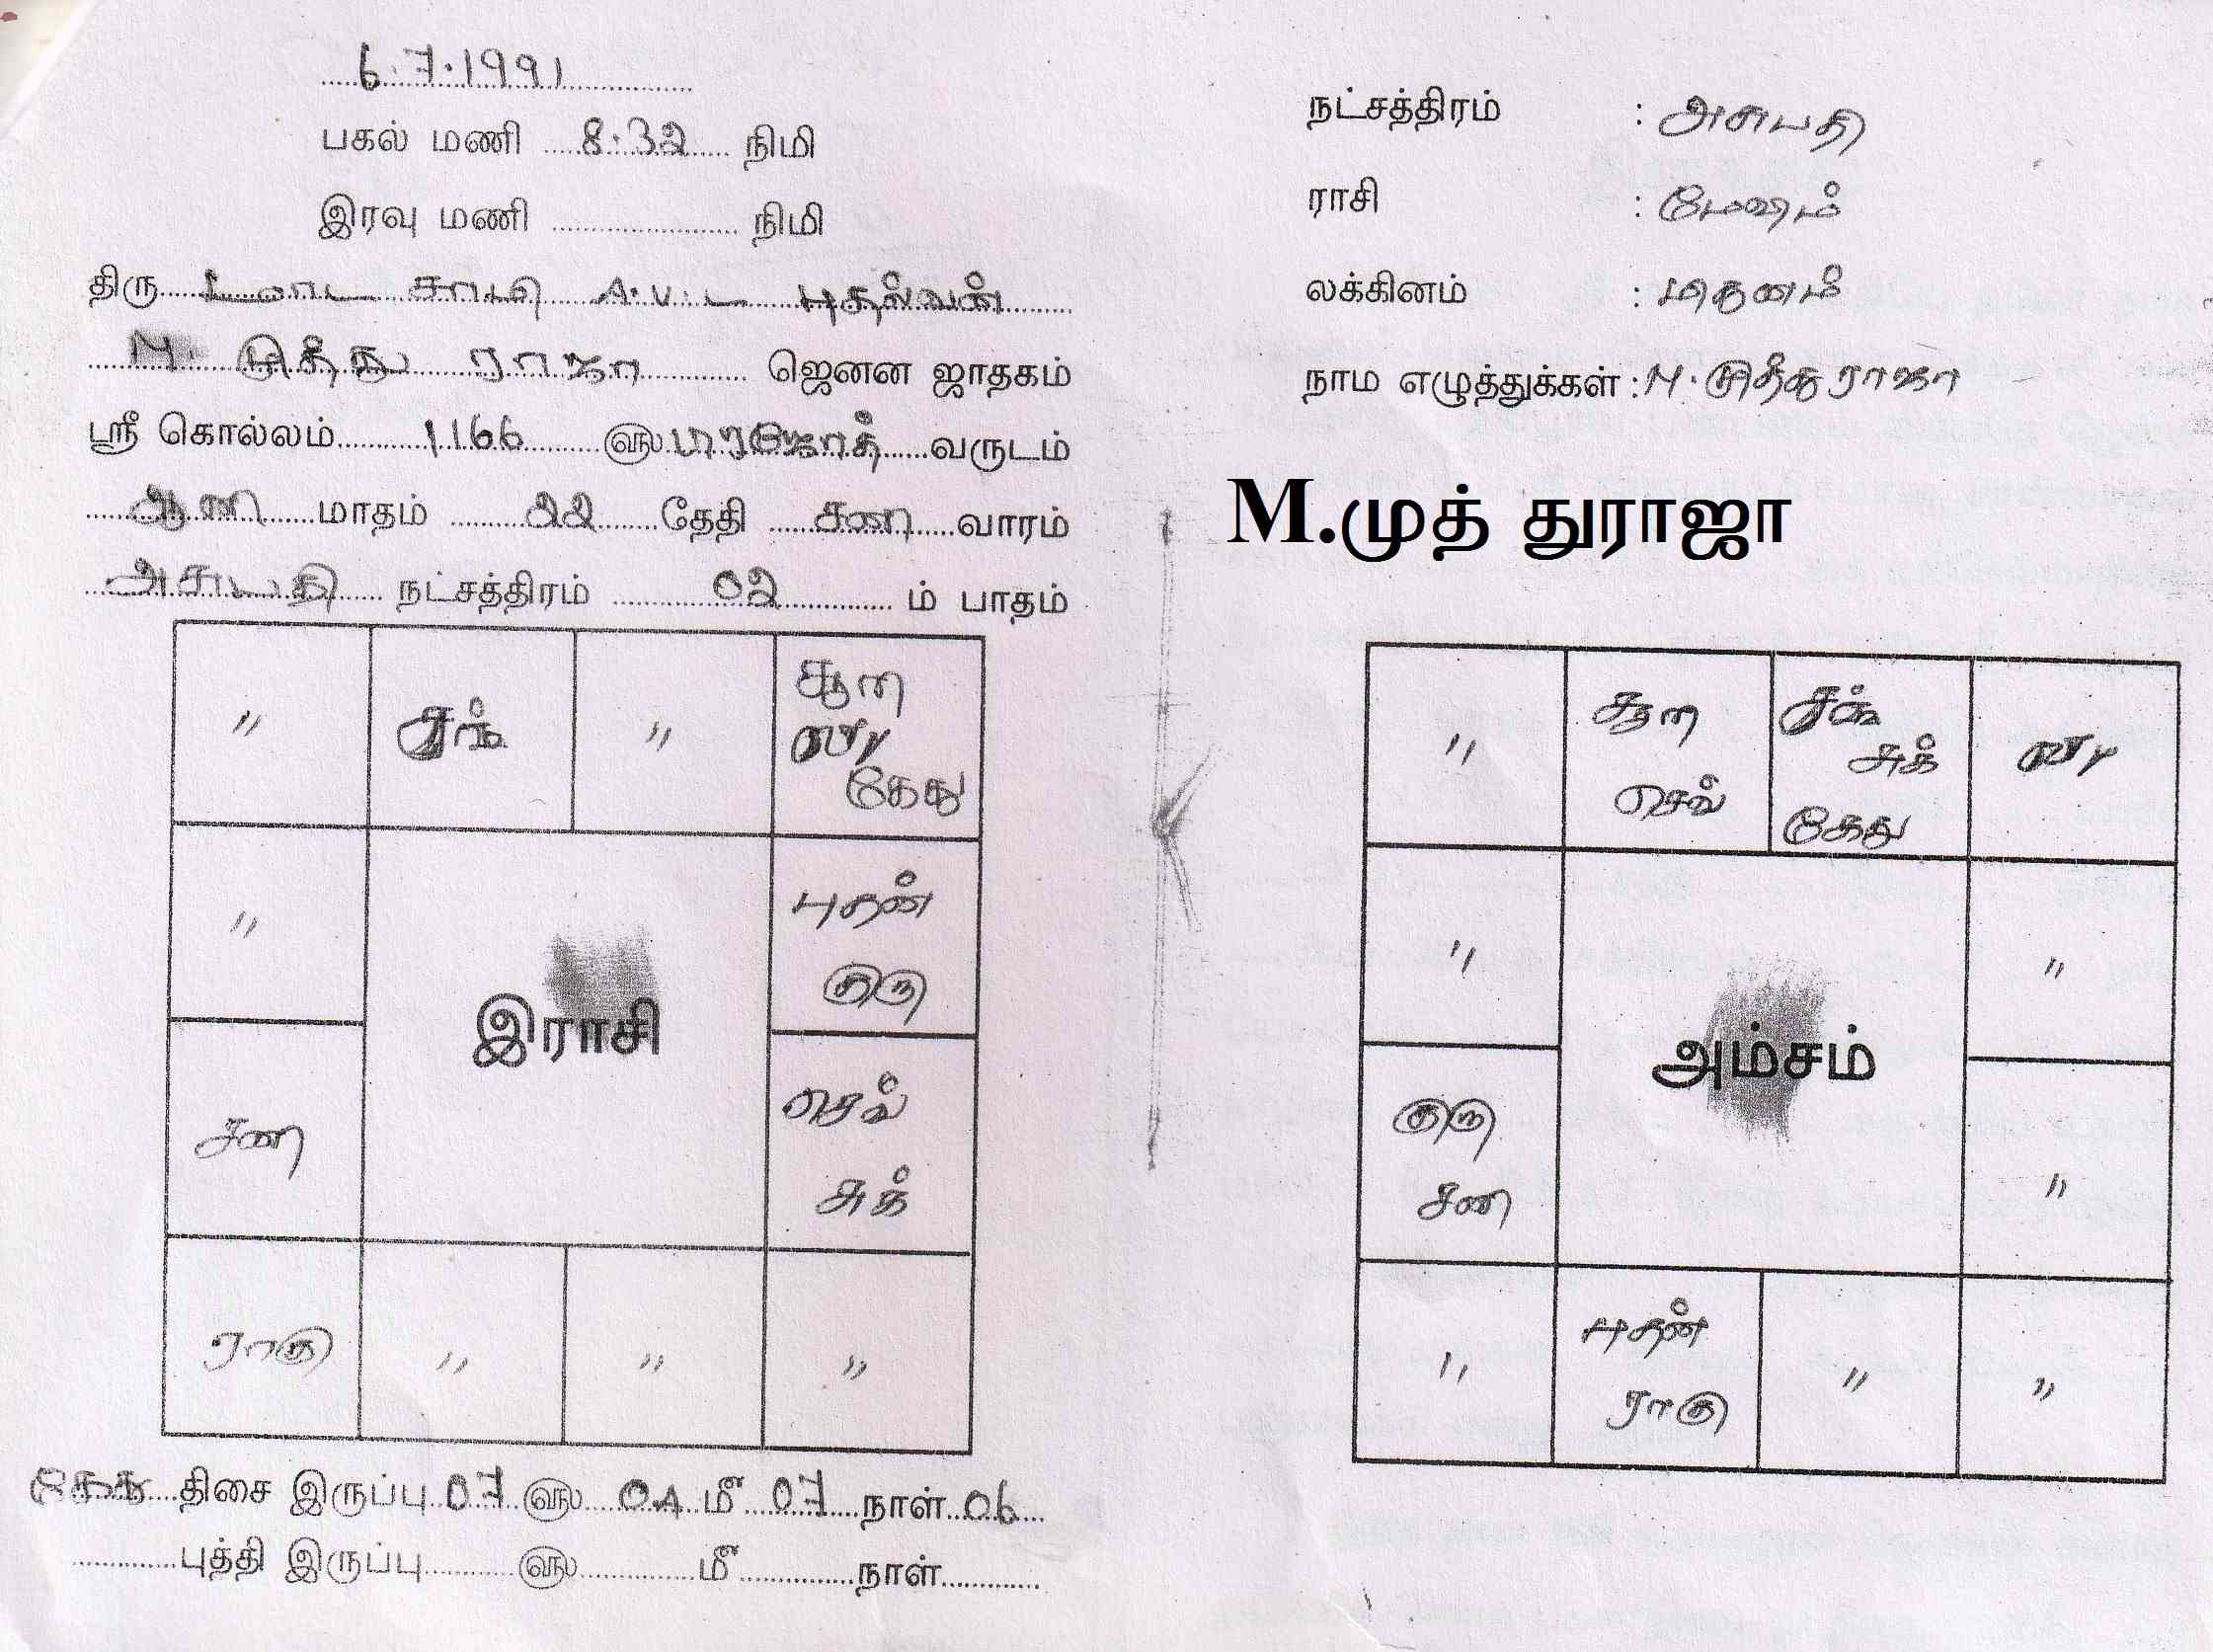 6.7.1991
பகல் மணி 8.32 நிமி
இரவு மணி நிமி
திரு சாமி A.V.L புதல்வன்
M. முத்து ராஜா ஜெனன ஜாதகம்
ஸ்ரீ கொல்லம் 1166 ௵ பிரஜோத் வருடம்
ஆனி மாதம் 22 தேதி சனி வாரம்
அசுபதி நட்சத்திரம் 02 ம் பாதம்
" சந் " சூரி
ல/
கேது
" புதன்
குரு
இராசி
சனி செவ்
சுக்
ராகு " " "
கேது திசை இருப்பு 07 ௵ 04 மீ 07 நாள் 06
புத்தி இருப்பு ௵ மீ நாள்
நட்சத்திரம் : அசுபதி
ராசி : மேஷம்
லக்கினம் : மிதுனம்
நாம எழுத்துக்கள் : M. முத்து ராஜா
M.முத் துராஜா
" சூரி சந் ல/
செவ் சுக்
கேது
" "
அம்சம்
குரு "
சனி
" புதன் " "
ராகு